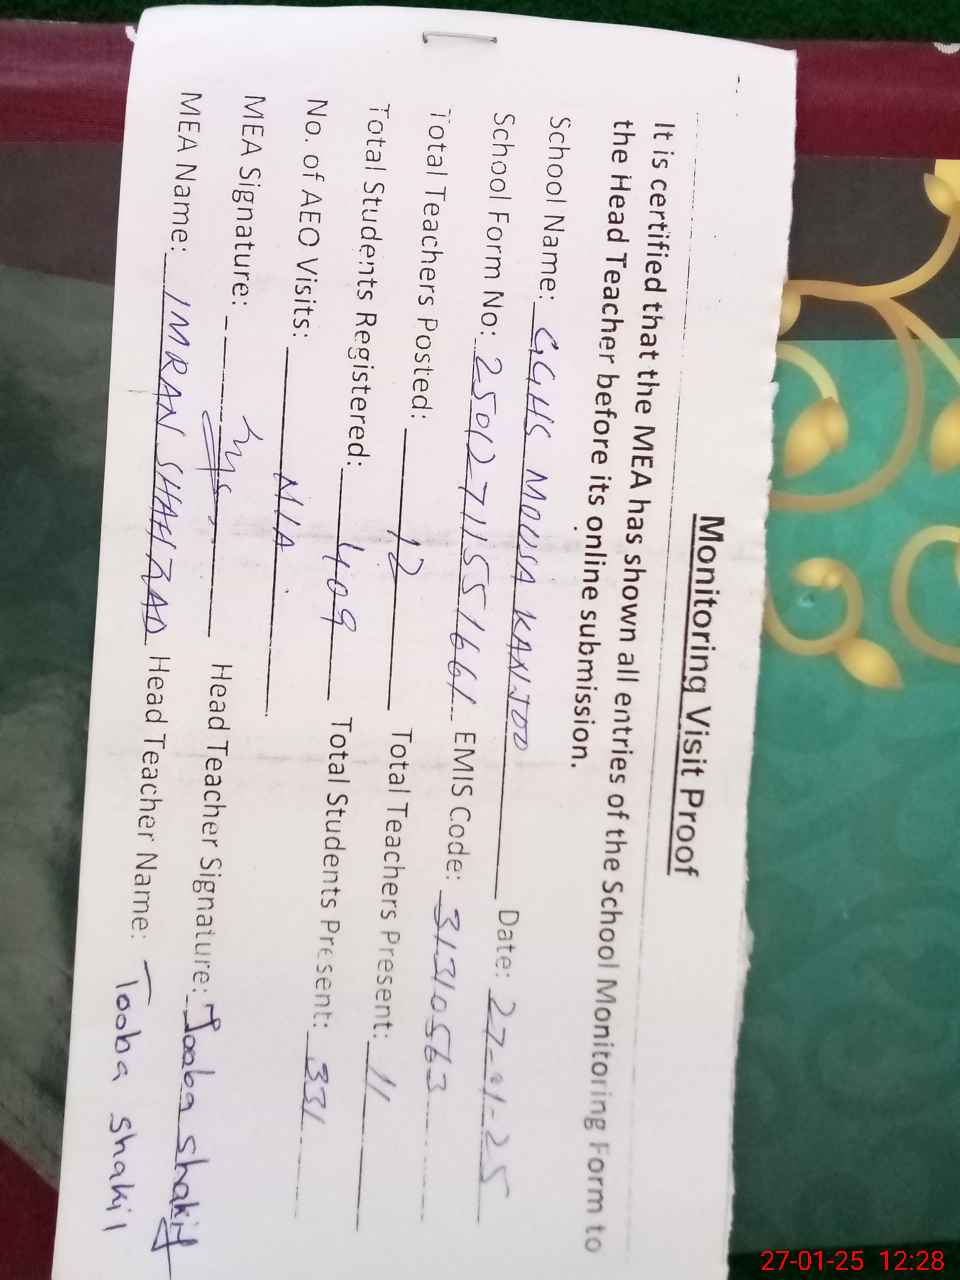 Monitoring Visit Proof
It is certified that the MEA has shown all entries of the School Monitoring Form to
the Head Teacher before its online submission.
School Name: GGHS MOUSA KANJOO Date: 27-01-25
School Form No: 25012711551661 EMIS Code: 31310563
Total Teachers Posted: 12 Total Teachers Present: 11
Total Students Registered: 409 Total Students Present: 331
No. of AEO Visits: N/A
MEA Signature: Head Teacher Signature: Tooba shakil
MEA Name: IMRAN SHAHZAD Head Teacher Name: Tooba shakil
27-01-25 12:28